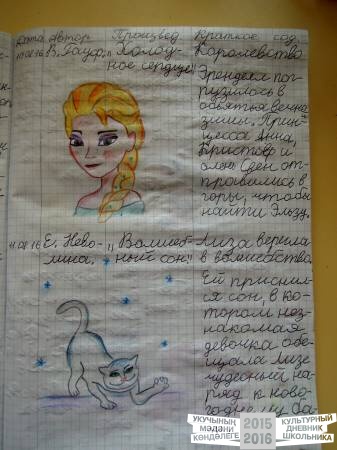 Дата Автор Произвед Краткое сод.
10.08.16 В. Гауф. "Холод- Королевство
ное сердце" Эренделл пог-
рузилось в
объятья вечной
зимы. Прин-
цесса Анна,
Кристоф и
олень Свен от-
правились в
горы, чтобы
найти Эльзу.
11.08.16 Е. Нево- "Волшеб- Лиза верила
лина. ный сон" в волшебство.
Ей приснил-
ся сон, в ко-
тором нез-
накомая
девочка обе-
щала Лизе
чудесный на-
ряд к ново-
УКУЧЫНЫҢ
МӘҘӘНИ
КӨНДӘЛЕГЕ
2015
2016
КУЛЬТУРНЫЙ
ДНЕВНИК
ШКОЛЬНИКА